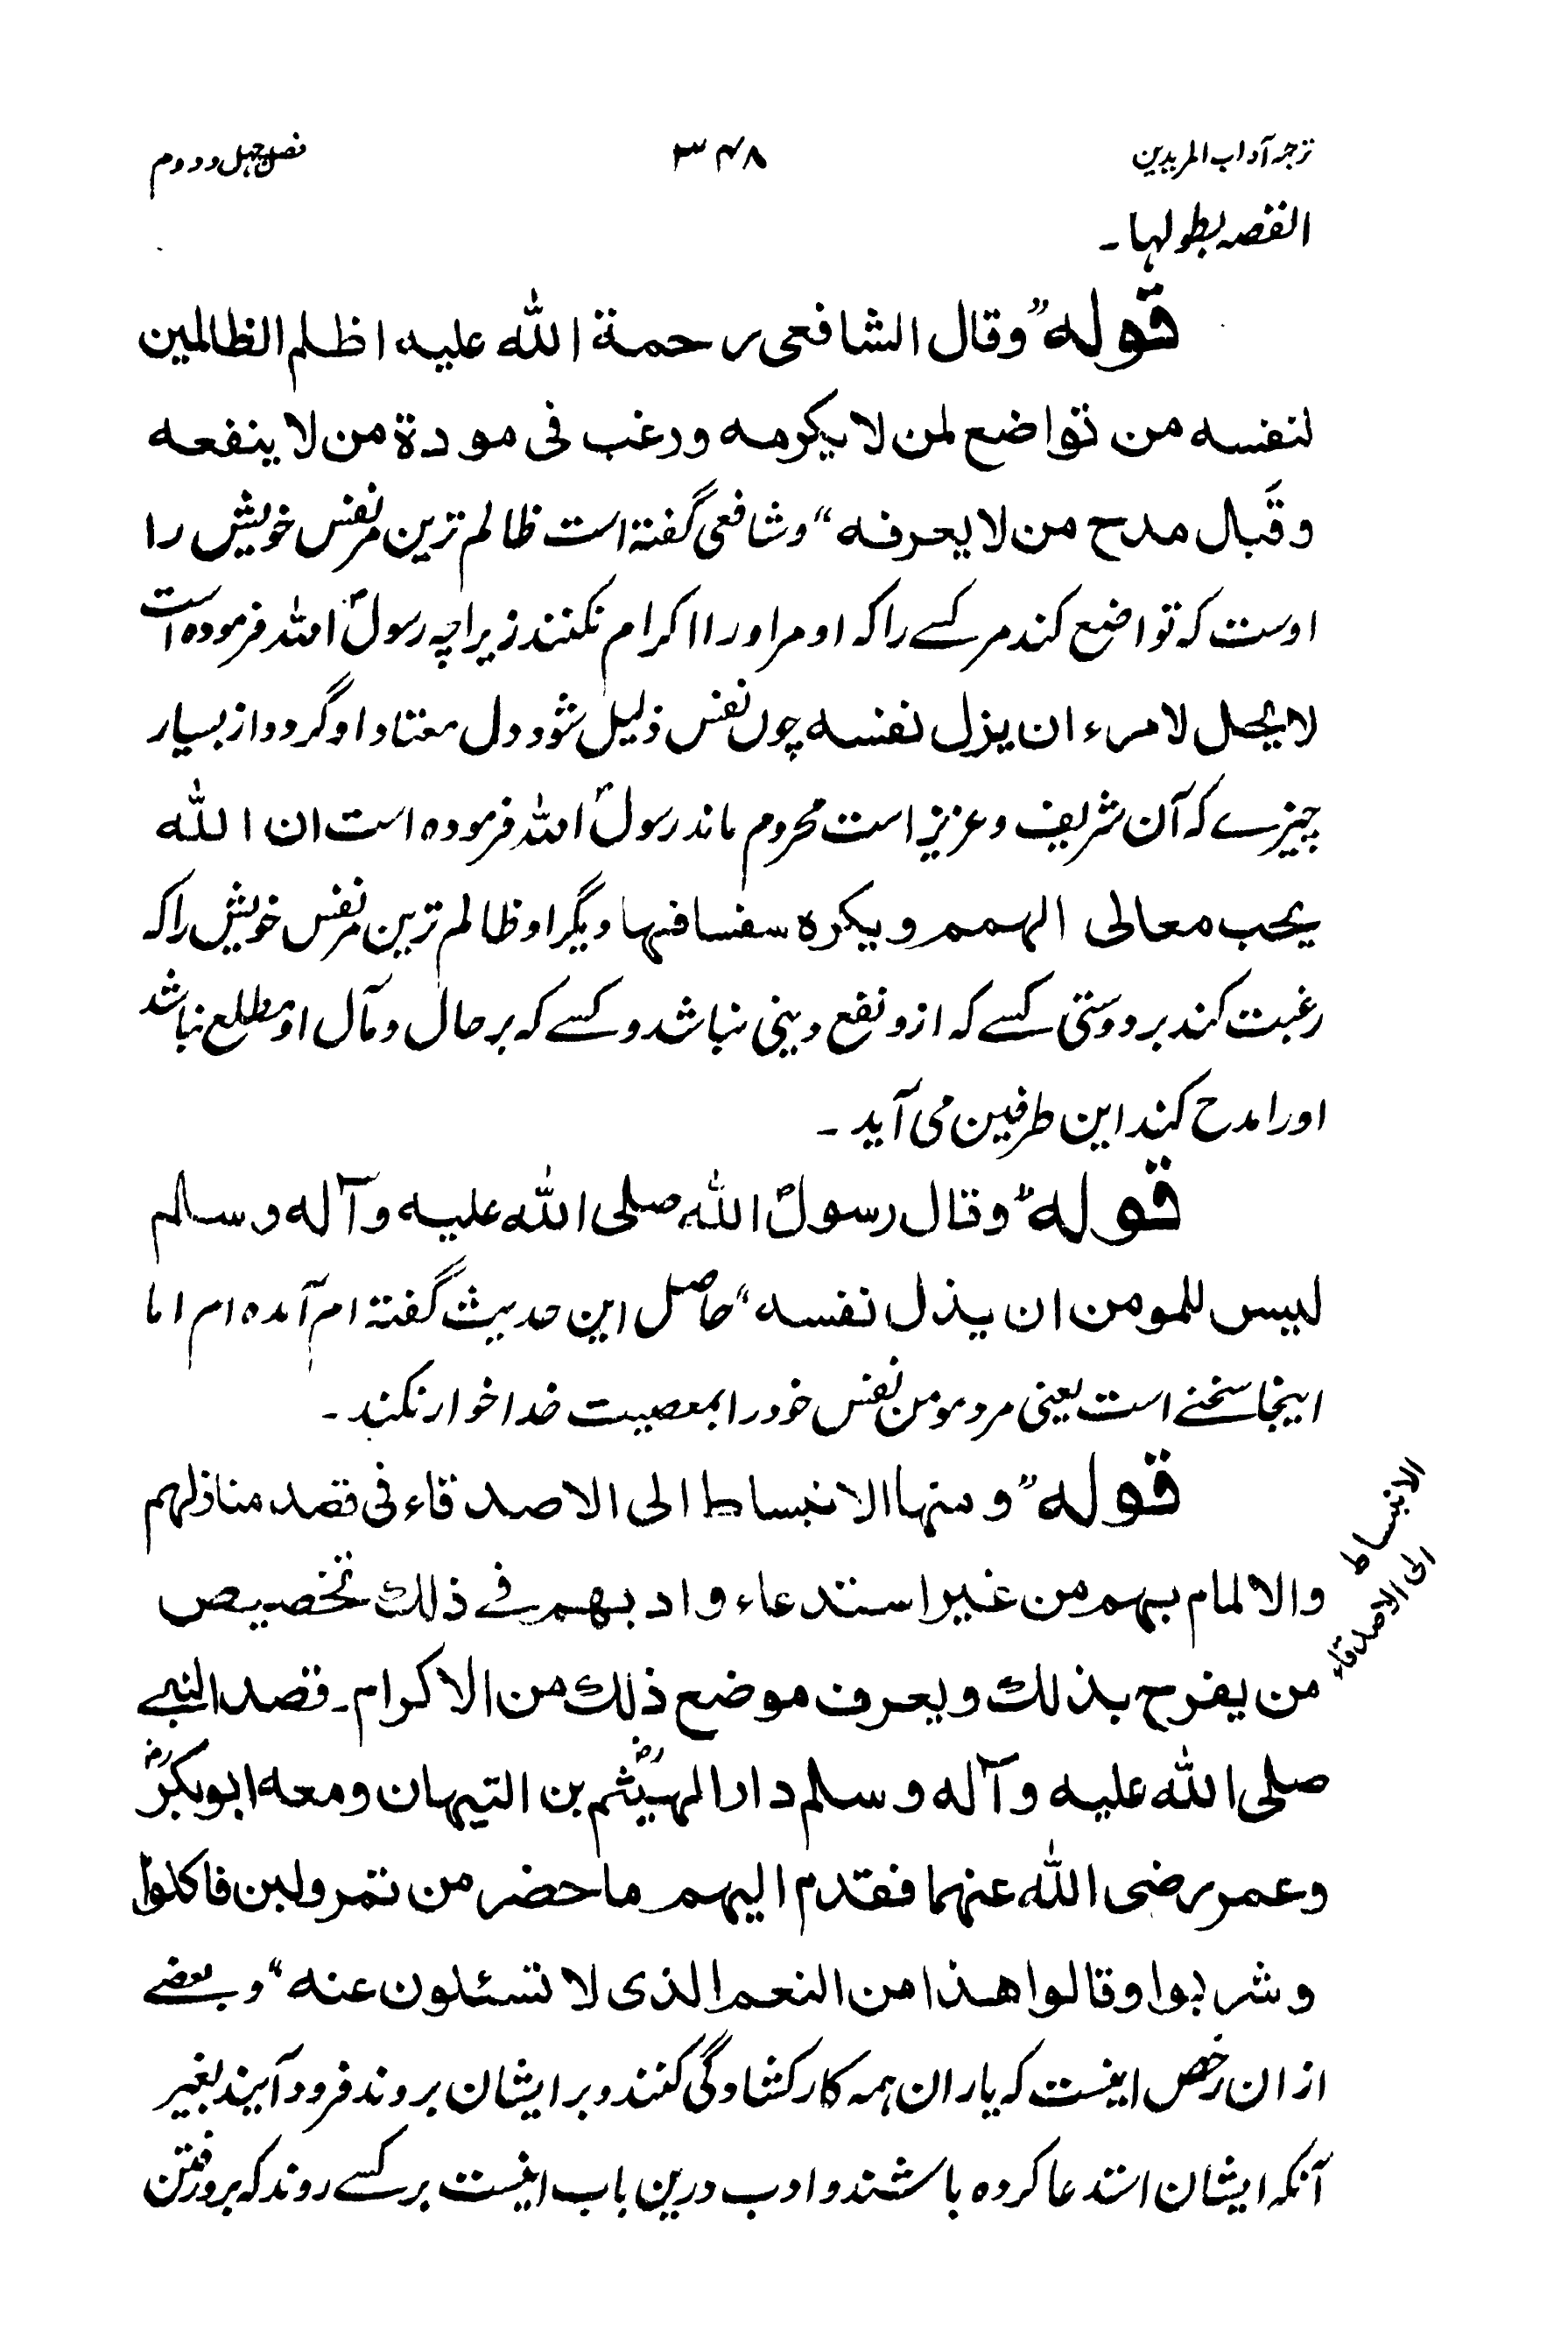 ترجمہ آداب المریدین
۳۴۸
فصل چہل و دوم
القصہ بطولہا ۔
قوله ”وقال الشافعی رحمة الله علیه اظلم الظالمین
لنفسه من تواضع لمن لا یکرمه ورغب فی مودة من لا ینفعه
وقَبِل مدح من لا یعرفه“ وشافعی گفتہ است ظالم ترین مر نفس خویش را
اوست کہ تواضع کند مر کسے را کہ او مر اورا اکرام نکنند زیراچہ رسولؐ اللہ فرمودہ است
لا یحل لامرء ان یزل نفسه چون نفس ذلیل شود دل معتاد او گردد از بسیار
چیزے کہ آن شریف و عزیز است محروم ماند رسولؐ اللہ فرمودہ است ان الله
یحب معالی الهمم ویکره سفسافها دیگر او ظالم ترین مر نفس خویش را کہ
رغبت کند بر دوستی کسے کہ ازو نفع دینی نباشد و کسے کہ بر حال و مآل او مطلع نباشد
اورا مدح کند این طرفین می آید ۔
قوله ”وقال رسولؐ الله صلی الله علیه وآله وسلم
لیس للمومن ان یذل نفسه“ حاصل این حدیث گفتہ ام آمدہ ام اما
اینجا سخنے است یعنی مرد مومن نفس خود را بمعصیت خدا خوار نکند ۔
قوله ”ومنها الانبساط الی الاصدقاء فی قصد منازلهم
الانبساط
الی الاصدقاء
والالمام بهم من غیر استدعاء وادبهم فی ذلك تخصیص
من یفرح بذلك ویعرف موضع ذلك من الاکرام۔ قصد النبی
صلی الله علیه وآله وسلم دار الهیثمؓ بن التیهان ومعه ابوبکرؓ
وعمر رضی الله عنهما فقدم الیهم ما حضر من تمر ولبن فاکلوا
وشربوا وقالوا هذا من النعم الذی لا تسئلون عنه“ و بعضے
ازان رخص اینست کہ یاران ہمہ کار کشادگی کنند و بر ایشان بروند فرود آیند بغیر
آنکہ ایشان استدعا کردہ باشند و ادب درین باب اینست بر کسے روند کہ برو رفتن